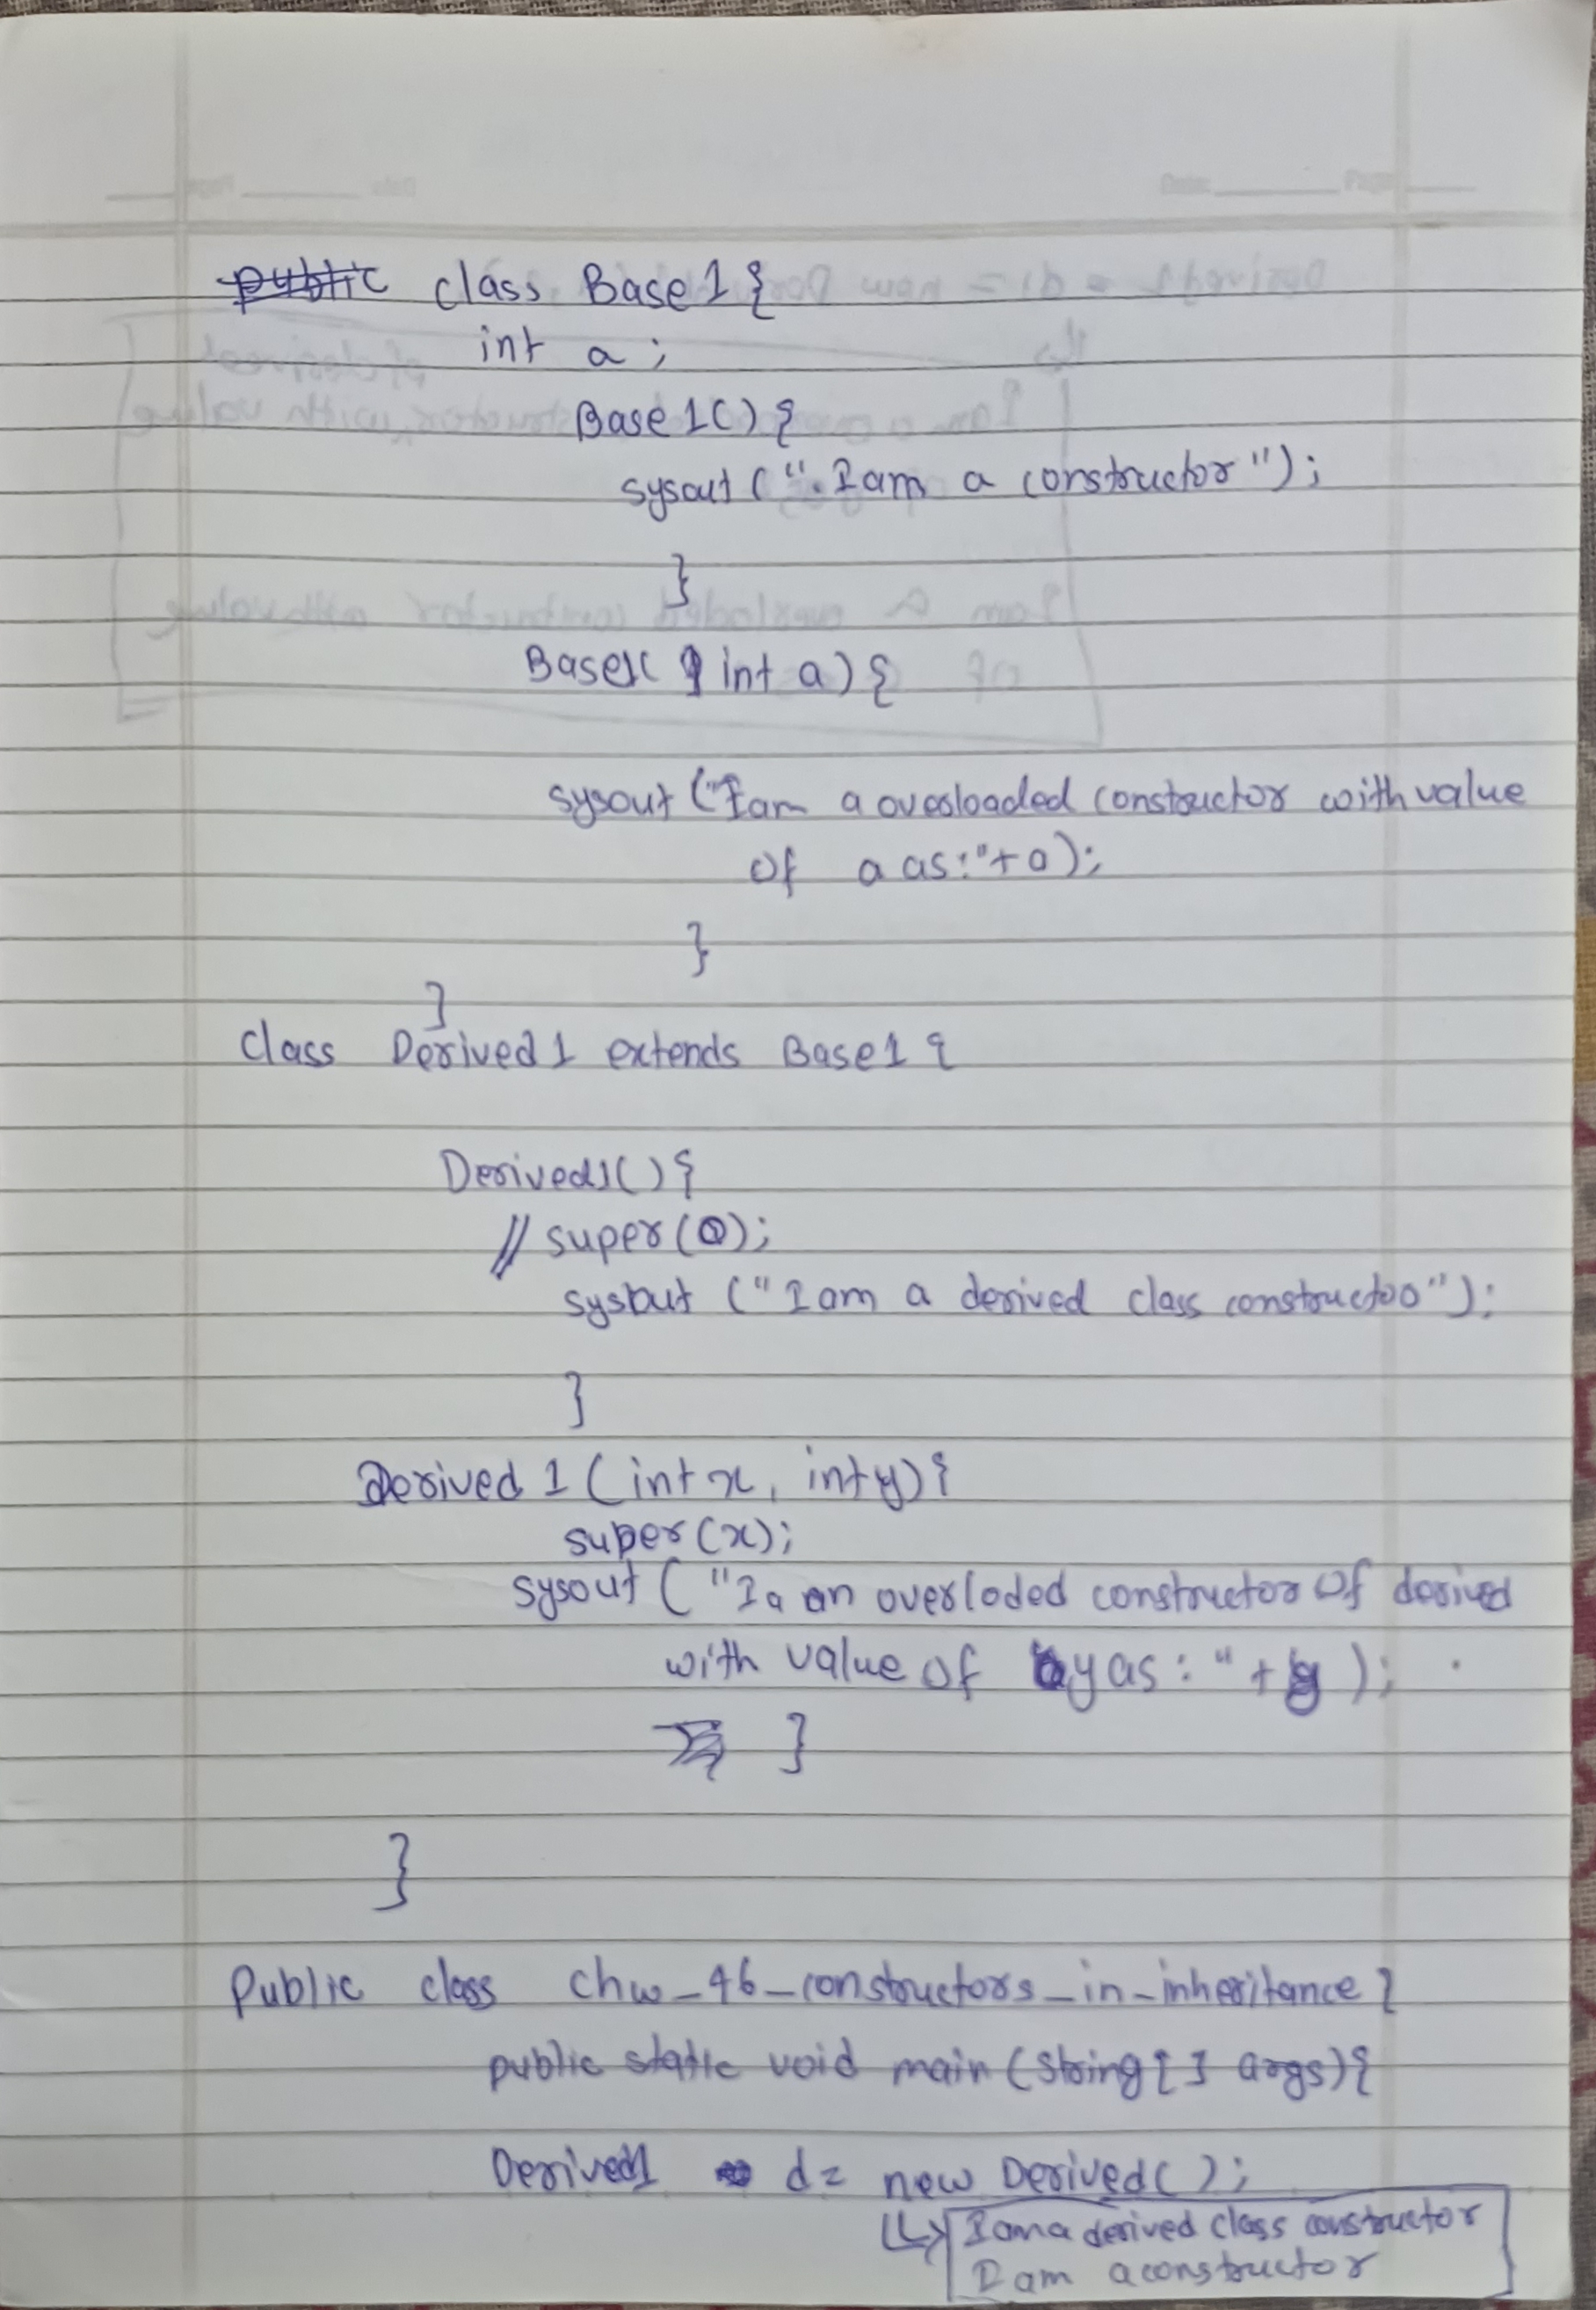 class Base1{
int a;
Base1(){
sysout(". I am a constructor");
}
Base1( int a){
sysout("I am a overloaded constructor with value
of a as:"+a);
}
}
class Derived1 extends Base1{
Derived1(){
// super(0);
sysout ("I am a derived class constructor");
}
Derived1 (int x, int y){
super(x);
sysout ("I a an overloded constructor of derived
with value of y as: "+y);
}
}
Public class chw_46_constructors_in_inheritance{
public static void main(string[] args){
Derived1 d= new Derived();
↳ I am a derived class constructor
I am a constructor